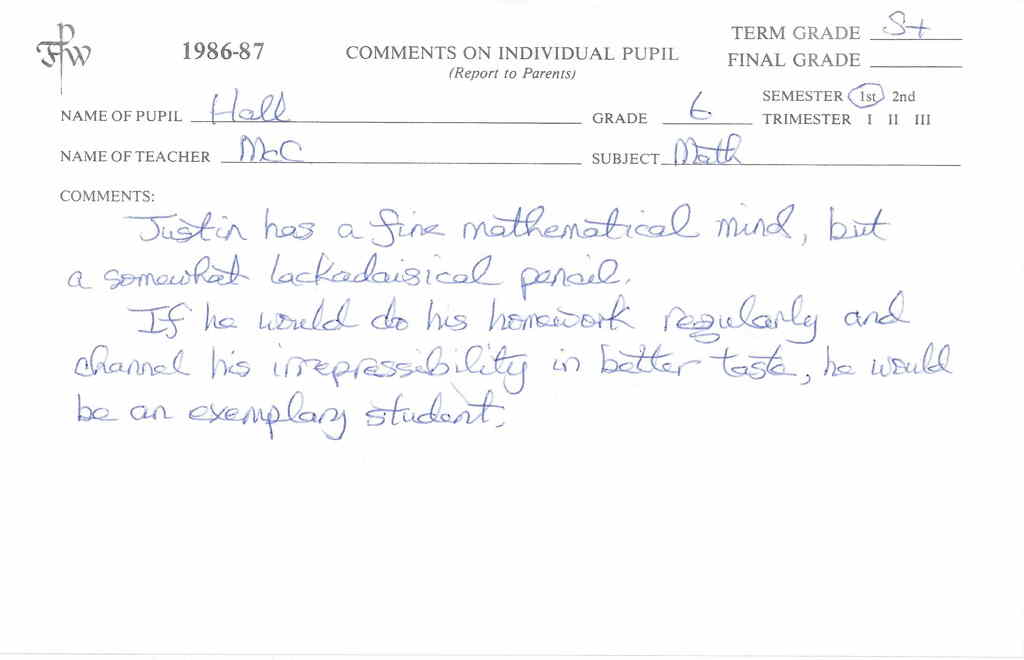 FPW
1986-87
COMMENTS ON INDIVIDUAL PUPIL
(Report to Parents)
TERM GRADE S+
FINAL GRADE
NAME OF PUPIL Hall
GRADE 6
SEMESTER 1st 2nd
TRIMESTER I II III
NAME OF TEACHER McC
SUBJECT Math
COMMENTS:
Justin has a fine mathematical mind, but
a somewhat lackadaisical pencil.
If he would do his homework regularly and
channel his irrepressibility in better taste, he would
be an exemplary student.